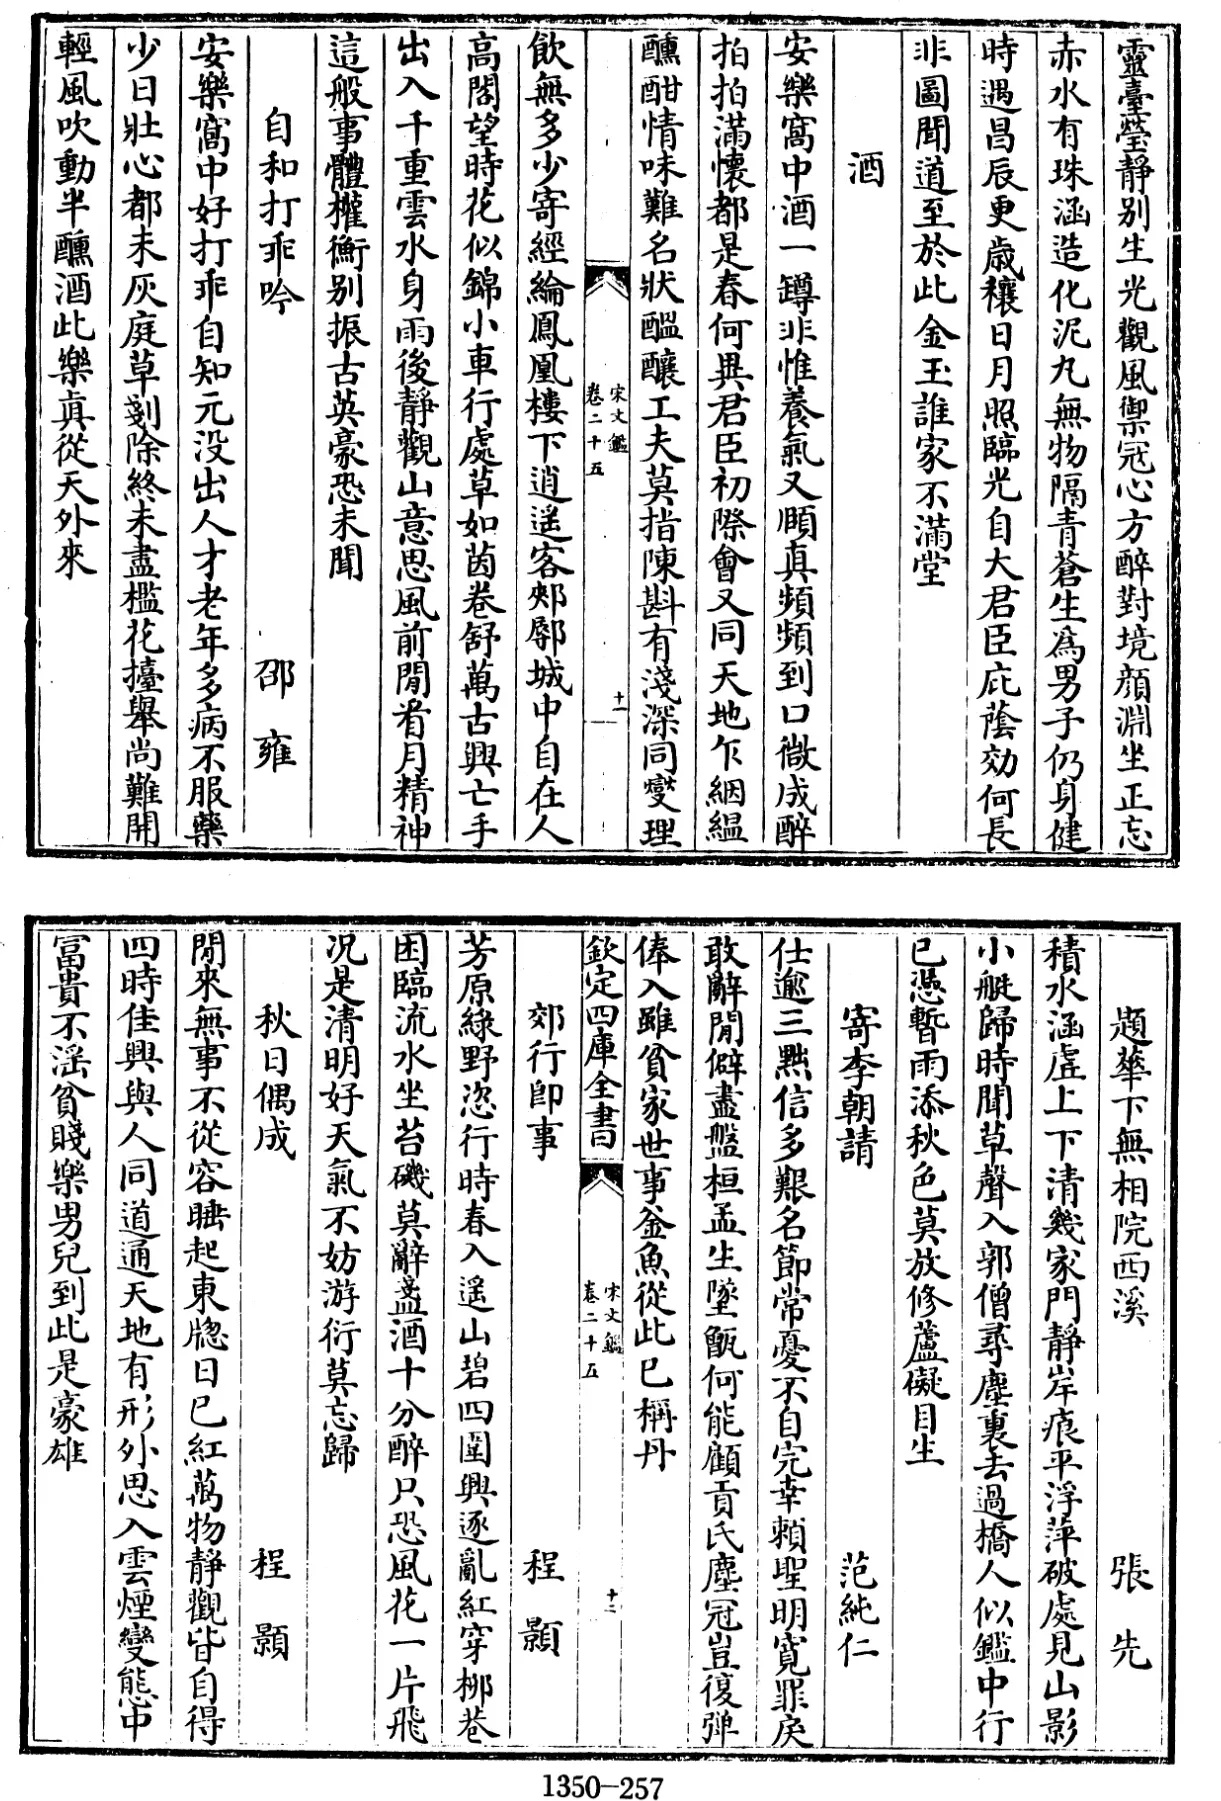 靈臺瑩靜别生光觀風禦冦心方醉對境顔淵坐正忘
赤水有珠涵造化泥丸無物隔青蒼生爲男子仍身健
時遇昌辰更歳穰日月照臨光自大君臣庇䕃効何長
非圖聞道至於此金玉誰家不滿堂
酒
安樂窩中酒一罇非惟養氣又頤真頻頻到口微成醉
拍拍滿懷都是春何異君臣初際會又同天地乍絪緼
醺酣情味難名狀醖釀工夫莫指陳斟有淺深同燮理
宋文鑑
卷二十五
十一
飲無多少寄經綸鳳凰樓下逍遥客郟鄏城中自在人
高閣望時花似錦小車行處草如茵卷舒萬古興亡手
出入千重雲水身雨後靜觀山意思風前閒看月精神
這般事體權衡别振古英豪恐未聞
自和打乖吟 邵雍
安樂窩中好打乖自知元没出人才老年多病不服藥
少日壯心都未灰庭草剗除終未盡檻花擡舉尚難開
輕風吹動半醺酒此樂真從天外來
題華下無相院西溪 張先
積水涵虛上下清幾家門靜岸痕平浮萍破處見山影
小艇歸時聞草聲入郭僧尋塵裏去過橋人似鑑中行
已憑暫雨添秋色莫放修蘆礙月生
寄李朝請 范純仁
仕逾三黙信多艱名節常憂不自完幸賴聖明寛罪戾
敢辭閒僻盡盤桓孟生墜甑何能顧貢氏塵冠豈復弹
俸入雖貧家世事釜魚從此已稱丹
欽定四庫全書
宋文鑑
卷二十五
十二
郊行即事 程顥
芳原緑野恣行時春入遥山碧四圍興逐亂紅穿栁巷
困臨流水坐苔磯莫辭盞酒十分醉只恐風花一片飛
况是清明好天氣不妨游衍莫忘歸
秋日偶成 程顥
閒來無事不從容睡起東牕日已紅萬物靜觀皆自得
四時佳興與人同道通天地有形外思入雲煙變態中
冨貴不滛貧賤樂男兒到此是豪雄
1350-257